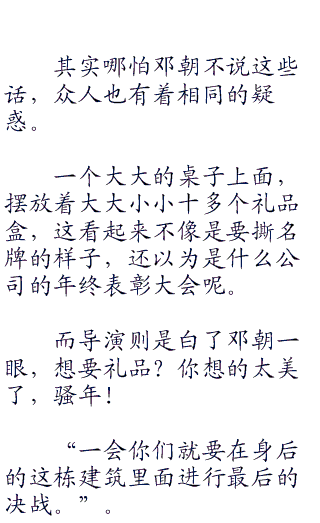 其实哪怕邓朝不说这些
话，众人也有着相同的疑
惑。
一个大大的桌子上面，
摆放着大大小小十多个礼品
盒，这看起来不像是要撕名
牌的样子，还以为是什么公
司的年终表彰大会呢。
而导演则是白了邓朝一
眼，想要礼品？你想的太美
了，骚年！
“一会你们就要在身后
的这栋建筑里面进行最后的
决战。”。